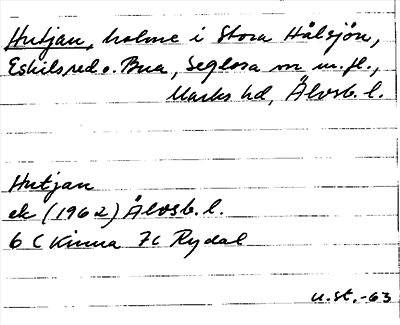 Hutjan, holme i Stora Hålsjön,
Eskilsred o. Bua, Seglora sn m.fl.,
Marks hd, Älvsb. l.
Hutjan
ek (1962) Älvsb. l.
6 C Kinna 7c Rydal
u.st.-63